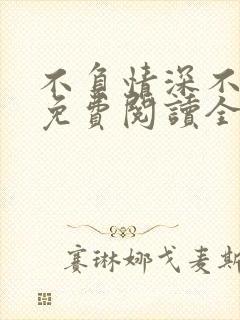 不負情深不
免費閱讀全
賽琳娜戈麦斯